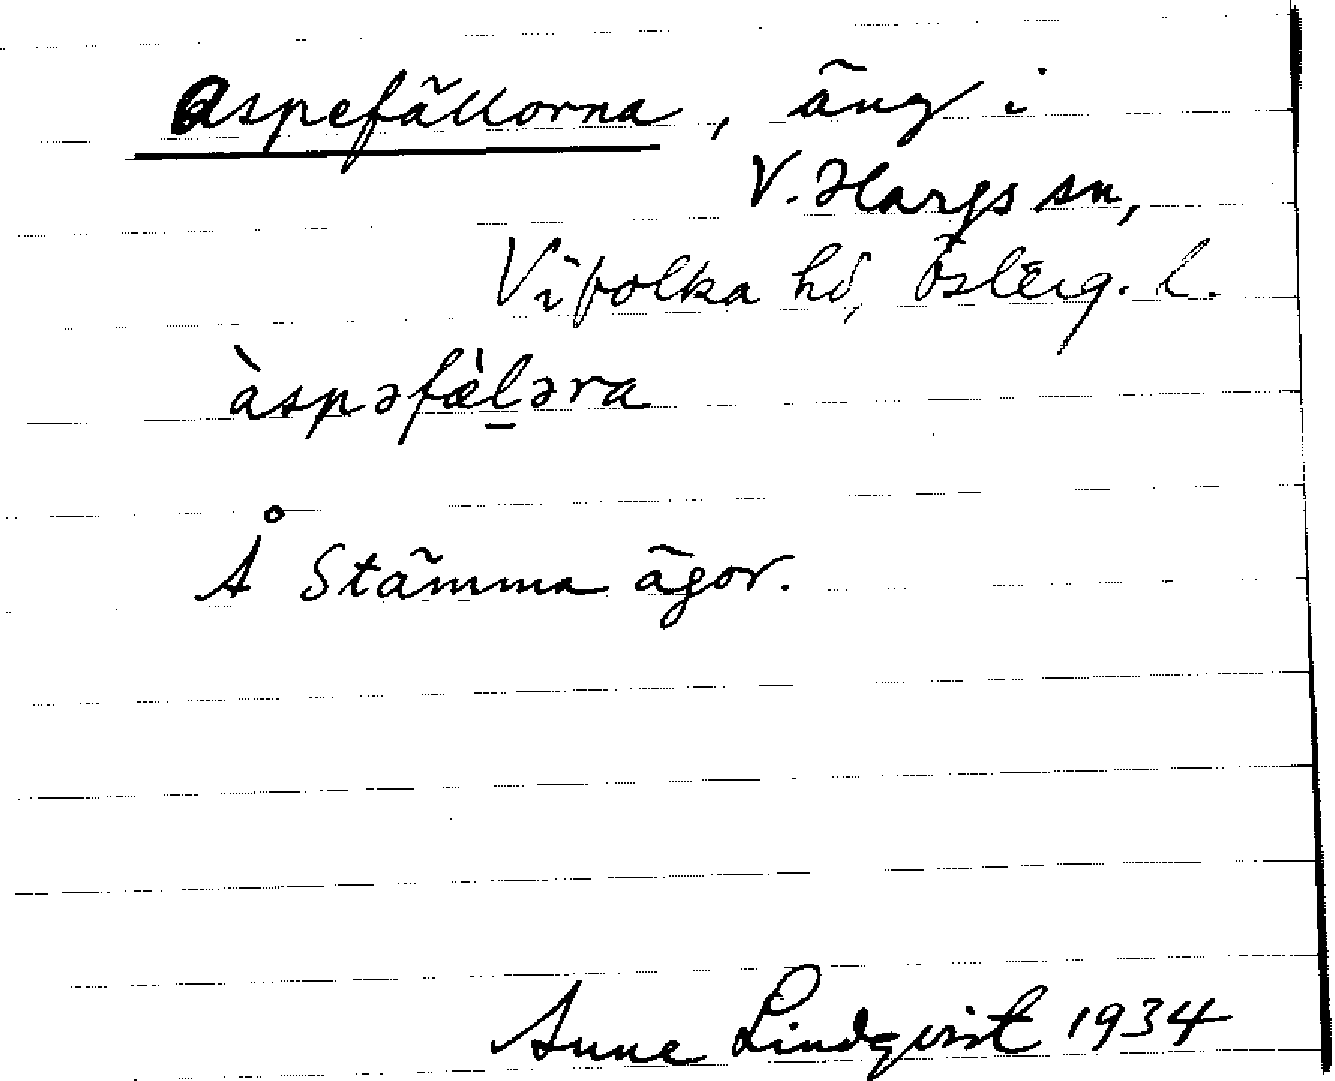 Aspefällorna, äng i
V. Hargs sn,
Vifolka hd, Österg. l.
àspəfæ̀l̲əra
Å Stämma ägor.
Sune Lindqvist 1934